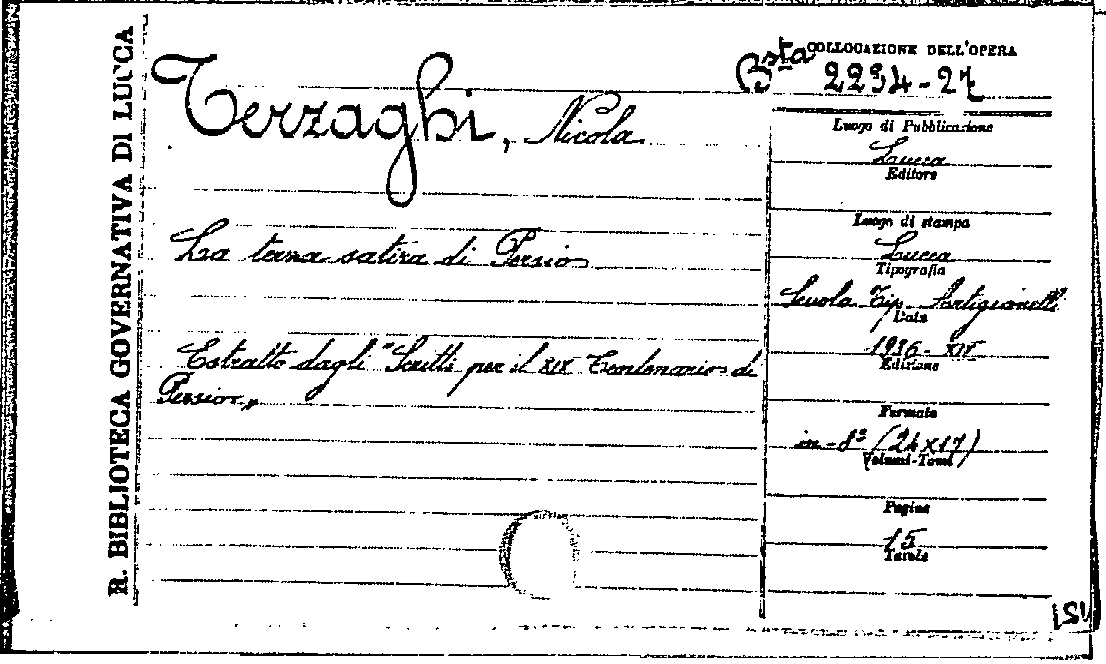 R. BIBLIOTECA GOVERNATIVA DI LUCCA
Terzaghi, Nicola
La terza satira di Persio
Estratto dagli "Scritti per il XIX Centenario di
Persio"
COLLOCAZIONE DELL'OPERA
Bsta 2294-27
Luogo di Pubblicazione
Lucca
Editore
Luogo di stampa
Lucca
Tipografia
Scuola Tip. Artigianelli
Data
1936-XIV
Edizione
Formato
in-8º (24x17)
Volumi-Tomi
Pagine
15
Tavole